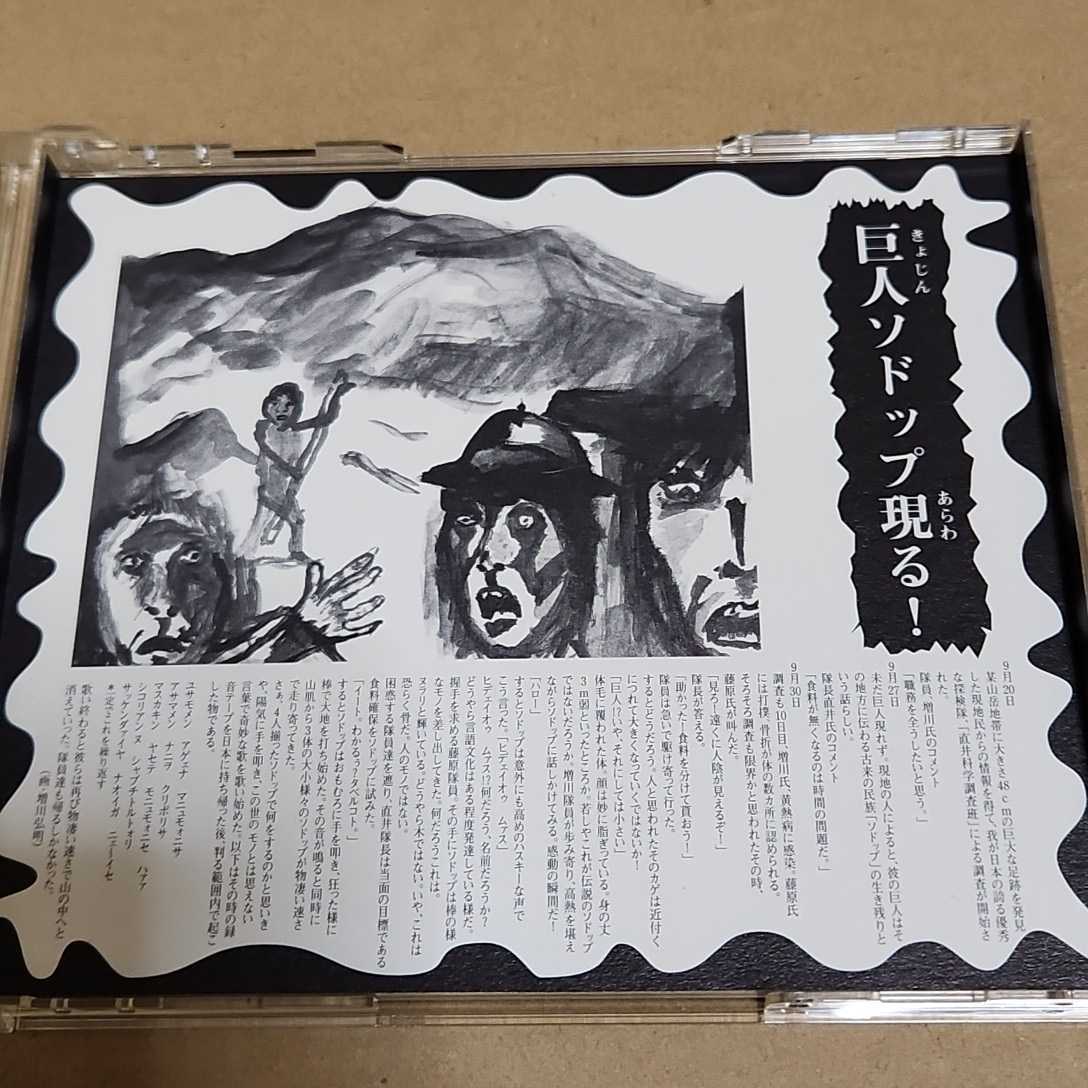 巨人ソドップ現る!
きょじん
あらわ
9月20日
某山岳地帯に大きさ48cmの巨大な足跡を発見
した現地民からの情報を得て、我が日本の誇る優秀
な探検隊、「直井科学調査班」による調査が開始さ
れた。
隊員、増川氏のコメント
「職務を全うしたいと思う。」
9月27日
未だ巨人現れず。現地の人によると、彼の巨人はそ
の地方に伝わる古来の民族「ソドップ」の生き残りと
いう話らしい。
隊長直井氏のコメント
「食料が無くなるのは時間の問題だ。」
9月30日
調査も10日目。増川氏、黄熱病に感染。藤原氏
には打撲、骨折が体の数カ所に認められる。
そろそろ調査も限界かと思われたその時、
藤原氏が叫んだ。
「見ろ!遠くに人陰が見えるぞー!」
隊長が答える。
「助かったー!食料を分けて貰おう!」
隊員は急いで駆け寄って行った。
するとどうだろう。人と思われたそのカゲは近付く
につれて大きくなっていくではないか!
「巨人!?いや、それにしては小さい」
体毛に覆われた体。顔は妙に脂ぎっている。身の丈
3m弱といったところか。若しやこれが伝説のソドップ
ではないだろうか。増川隊員が歩み寄り、高熱を堪え
ながらソドップに話しかけてみる。感動の瞬間だ!
「ハロー」
するとソドップは意外にも高めのハスキーな声で
こう言った。「ヒデェイオゥ ムアス」
ヒデェイオゥ ムアス!?何だろう、名前だろうか?
どうやら言語文化はある程度発達している様だ。
握手を求める藤原隊員。その手にソドップは棒の様
なモノを差し出してきた。何だろうこれは。
ヌラリと輝いている。どうやら木ではない。いや、これは
恐らく骨だ。人のモノではない。
困惑する隊員達を遮り、直井隊長は当面の目標である
食料確保をソドップに試みた。
「イート。わかるぅ?タベルコト。」
するとソドップはおもむろに手を叩き、狂った様に
棒で大地を打ち始めた。その音が鳴ると同時に
山肌から3体の大小様々のソドップが物凄い速さ
で走り寄ってきた。
さぁ、4人揃ったソドップで何をするのかと思いき
や、陽気に手を叩き、この世のモノとは思えない
言葉で奇妙な歌を歌い始めた。以下はその時の録
音テープを日本に持ち帰った後、判る範囲内で起こ
した物である。
ユサモメン アゲェナ マニユモォニサ
アサマメン ナニヲ クリボリサ
マスカキン ヤセテ モニユモォニセ ハァァ
シコリアンヌ シャブチトルトオリ
サッケンヴァイヤ ナオイガ ニェーイセ
*定づこれを繰り返す
歌い終わると彼らは再び物凄い速さで山の中へと
消えていった。隊員達も帰るしかなかった。
(画・増川弘明)